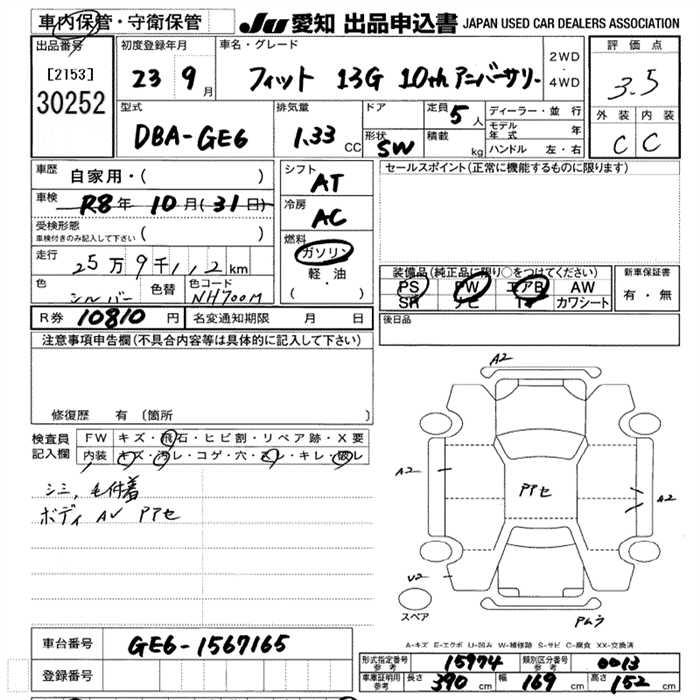 車内保管・守衛保管
JU 愛知 出品申込書 JAPAN USED CAR DEALERS ASSOCIATION
出品番号
[2153]
30252
初度登録年月
23 9月
車名・グレード
フィット 13G 10th アニバーサリー
2WD
4WD
評価点
3.5
外装 内装
C C
型式
DBA-GE6
排気量
1.33 CC
ドア
形状
SW
定員 5人
積載 kg
ディーラー・並行
モデル年式 年
ハンドル 左・右
車歴 自家用・( )
車検 R8年 10月(31日)
受検形態
車検付きのみ記入して下さい ( )
走行 25万9千112km
色 シルバー 色替 色コード NH700M
シフト AT
冷房 AC
燃料
ガソリン
軽・油
( )
セールスポイント(正常に機能するものに限ります)
装備品(純正品に限り○をつけてください)
PS PW エアB AW
SR ナビ TV カワシート
新車保証書
有・無
R券 10810円 名変通知期限 月 日
後日品
注意事項申告欄(不具合内容等は具体的に記入して下さい)
修復歴 有(箇所 )
検査員記入欄
FW キズ・飛石・ヒビ割・リペア跡・X要
内装 キズ・汚レ・コゲ・穴・スレ・キレ・破レ
シミ,毛付着
ボディ AV PPセ
A2
A2
PPセ
A2
U2
スペア
PAムラ
A-キズ E-エクボ U-凹み W-補修跡 S-サビ C-腐食 XX-交換済
車台番号 GE6-1567165
登録番号
形式指定番号 参考 15974 類別区分番号 参考 0013
車庫証明用 参考 長さ 390cm 幅 169cm 高さ 152cm